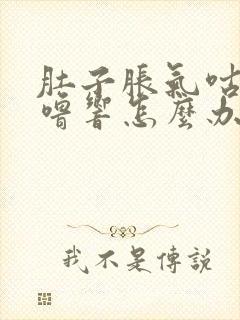 肚子脹氣咕
嚕響怎麼办
我不是傳説